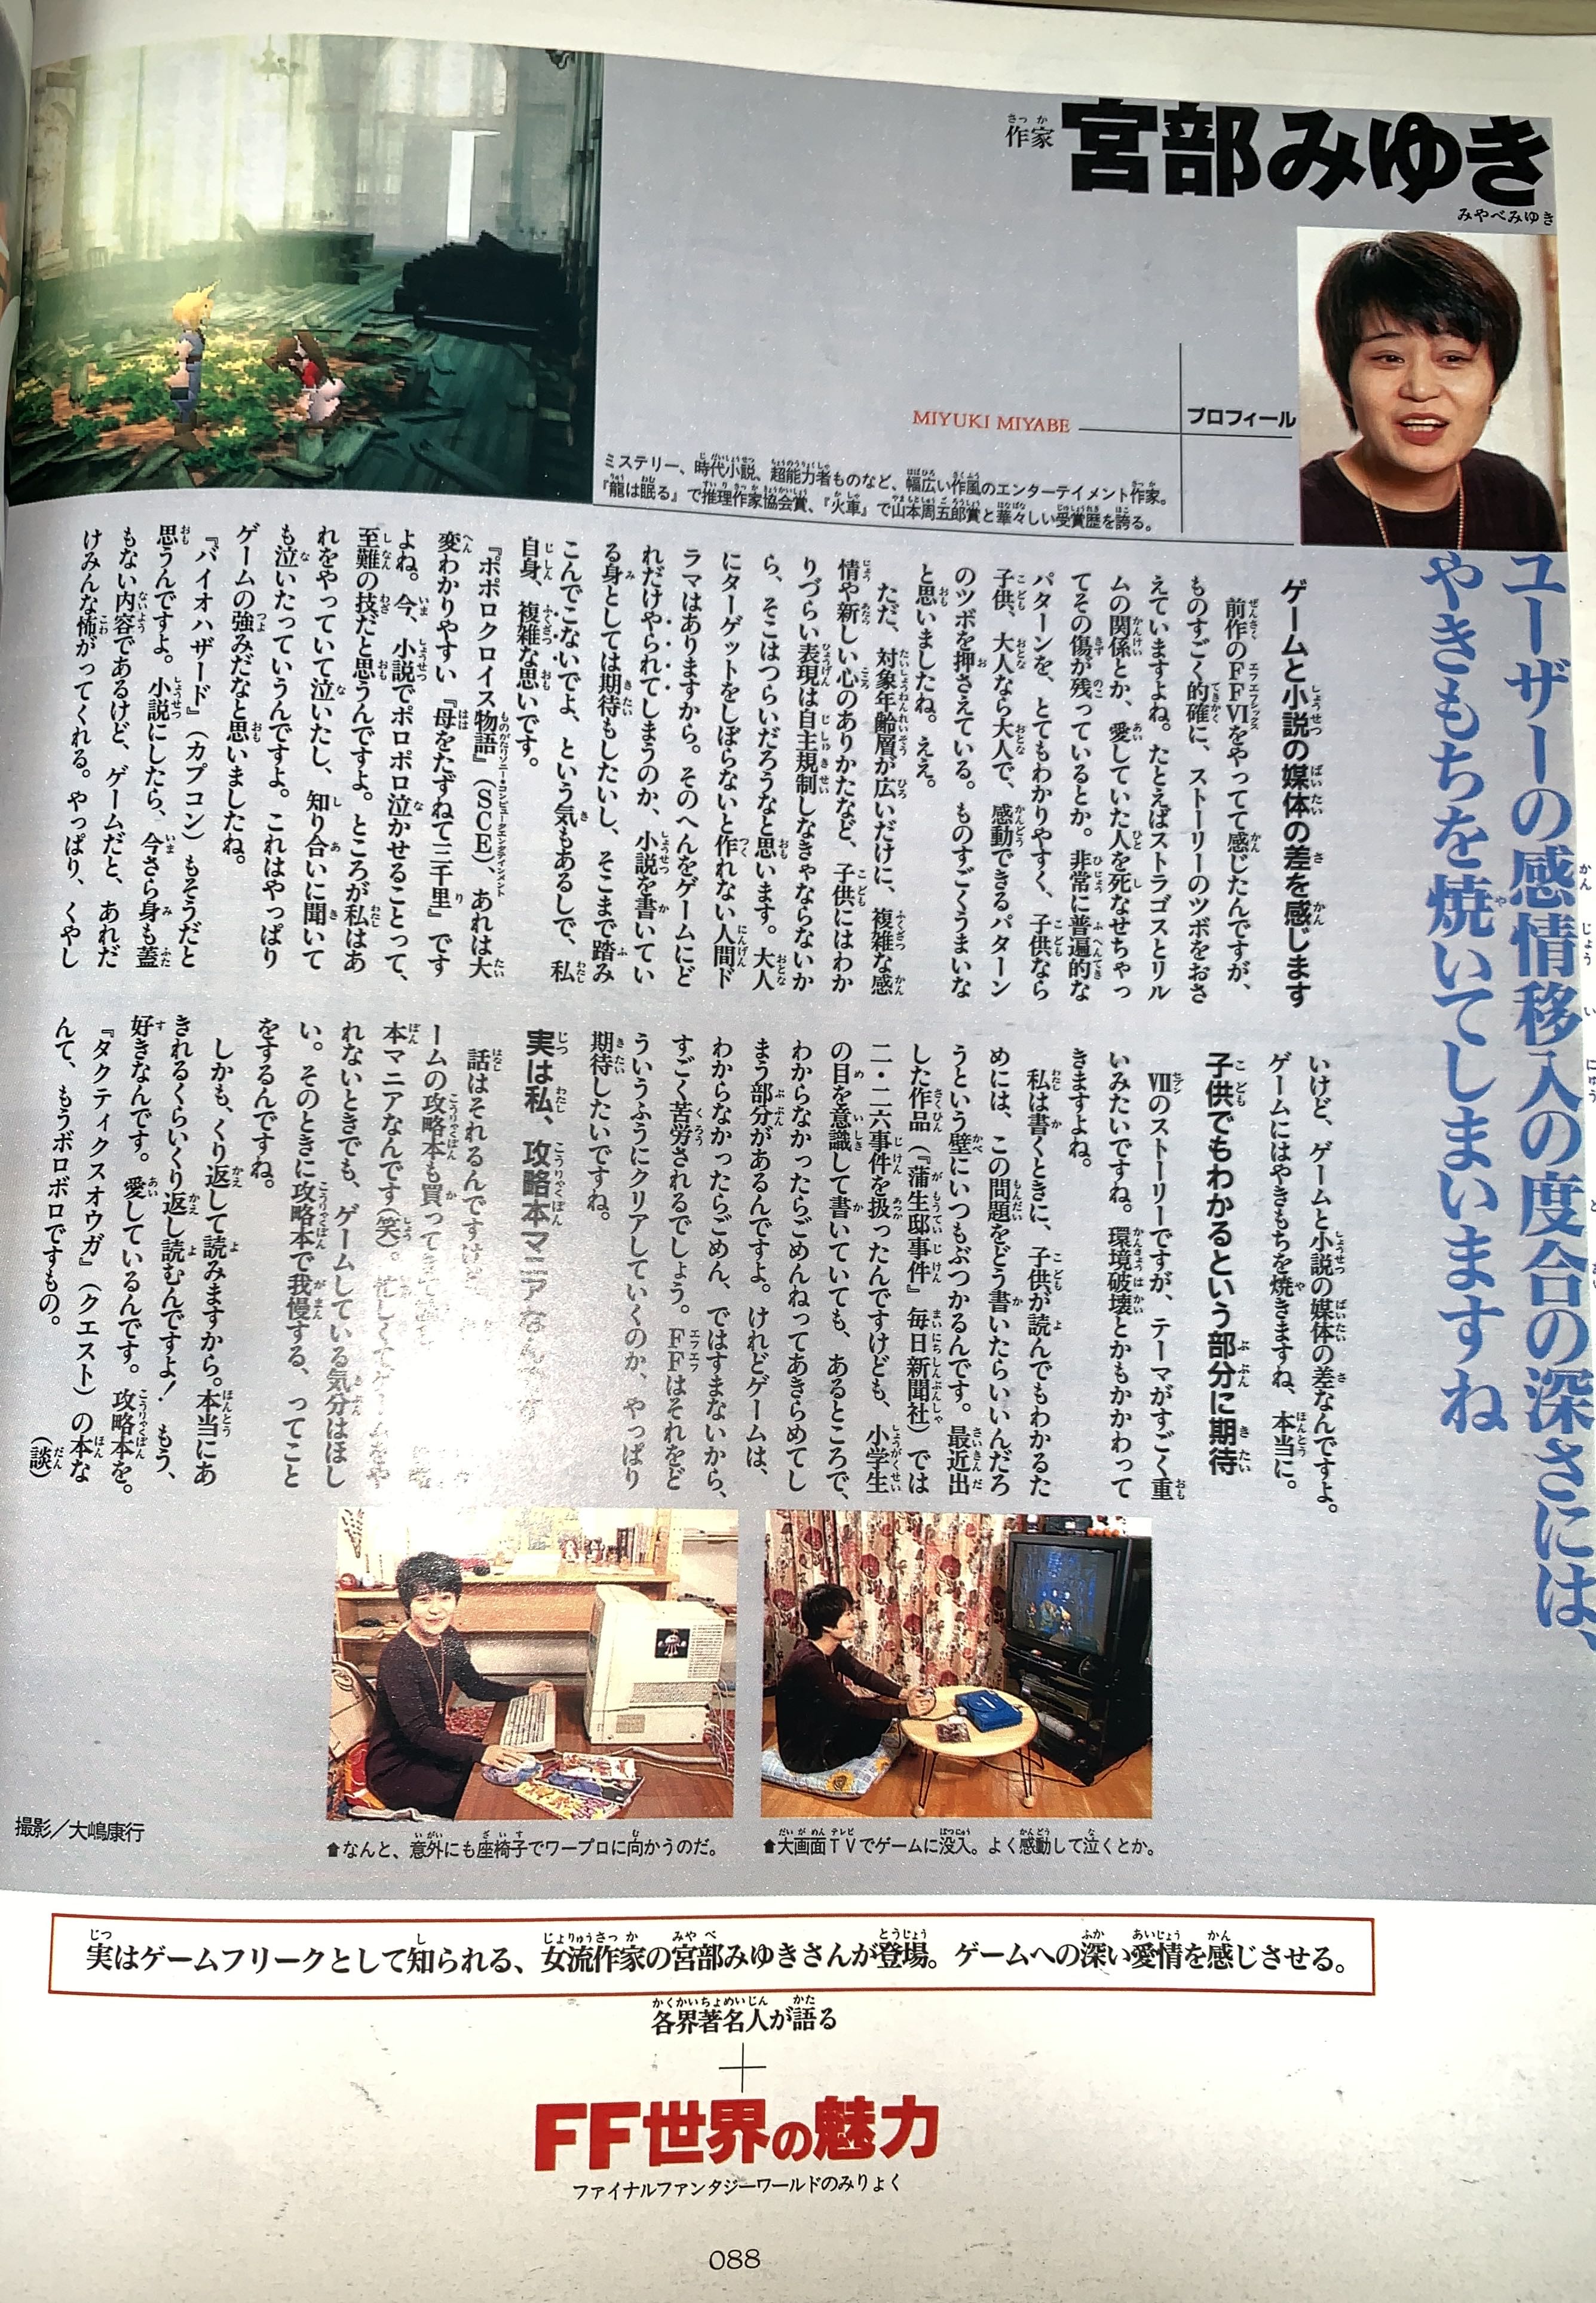 作家 宮部みゆき
みやべみゆき
プロフィール
MIYUKI MIYABE
ミステリー、時代小説、超能力者ものなど、幅広い作風のエンターテイメント作家。
『龍は眠る』で推理作家協会賞、『火車』で山本周五郎賞と華々しい受賞歴を誇る。
ユーザーの感情移入の度合の深さには、
やきもちを焼いてしまいますね
ゲームと小説の媒体の差を感じます
前作のFFⅥをやってて感じたんですが、
ものすごく的確に、ストーリーのツボをおさ
えていますよね。たとえばストラゴスとリル
ムの関係とか、愛していた人を死なせちゃっ
てその傷が残っているとか。非常に普遍的な
パターンを、とてもわかりやすく、子供なら
子供、大人なら大人で、感動できるパターン
のツボを押さえている。ものすごくうまいな
と思いましたね。ええ。
ただ、対象年齢層が広いだけに、複雑な感
情や新しい心のありかたなど、子供にはわか
りづらい表現は自主規制しなきゃならないか
ら、そこはつらいだろうなと思います。大人
にターゲットをしぼらないと作れない人間ド
ラマはありますから。そのへんをゲームにど
れだけやられてしまうのか、小説を書いてい
る身としては期待もしたいし、そこまで踏み
こんでこないでよ、という気もあるしで、私
自身、複雑な思いです。
『ポポロクロイス物語』（SCE）、あれは大
変わかりやすい『母をたずねて三千里』です
よね。今、小説でポロポロ泣かせることって、
至難の技だと思うんですよ。ところが私はあ
れをやっていて泣いたし、知り合いに聞いて
も泣いたっていうんですよ。これはやっぱり
ゲームの強みだなと思いましたね。
『バイオハザード』（カプコン）もそうだと
思うんですよ。小説にしたら、今さら身も蓋
もない内容であるけど、ゲームだと、あれだ
けみんな怖がってくれる。やっぱり、くやし
いけど、ゲームと小説の媒体の差なんですよ。
ゲームにはやきもちを焼きますね、本当に。
子供でもわかるという部分に期待
Ⅶのストーリーですが、テーマがすごく重
いみたいですね。環境破壊とかもかかわって
きますよね。
私は書くときに、子供が読んでもわかるた
めには、この問題をどう書いたらいいんだろ
うという壁にいつもぶつかるんです。最近出
した作品（『蒲生邸事件』毎日新聞社）では
二・二六事件を扱ったんですけども、小学生
の目を意識して書いていても、あるところで、
わからなかったらごめんねってあきらめてし
まう部分があるんですよ。けれどゲームは、
わからなかったらごめん、ではすまないから、
すごく苦労されるでしょう。FFはそれをど
ういうふうにクリアしていくのか、やっぱり
期待したいですね。
実は私、攻略本マニアなんです
話はそれるんですけど
ームの攻略本も買ってき
本マニアなんです（笑）。忙しくてゲームをや
れないときでも、ゲームしている気分はほし
い。そのときに攻略本で我慢する、ってこと
をするんですね。
しかも、くり返して読みますから。本当にあ
きれるくらいくり返し読むんですよ！ もう、
好きなんです。愛しているんです。攻略本を。
『タクティクスオウガ』（クエスト）の本な
んて、もうボロボロですもの。
（談）
⬆なんと、意外にも座椅子でワープロに向かうのだ。
⬆大画面TVでゲームに没入。よく感動して泣くとか。
撮影／大嶋康行
実はゲームフリークとして知られる、女流作家の宮部みゆきさんが登場。ゲームへの深い愛情を感じさせる。
各界著名人が語る
FF世界の魅力
ファイナルファンタジーワールドのみりょく
088